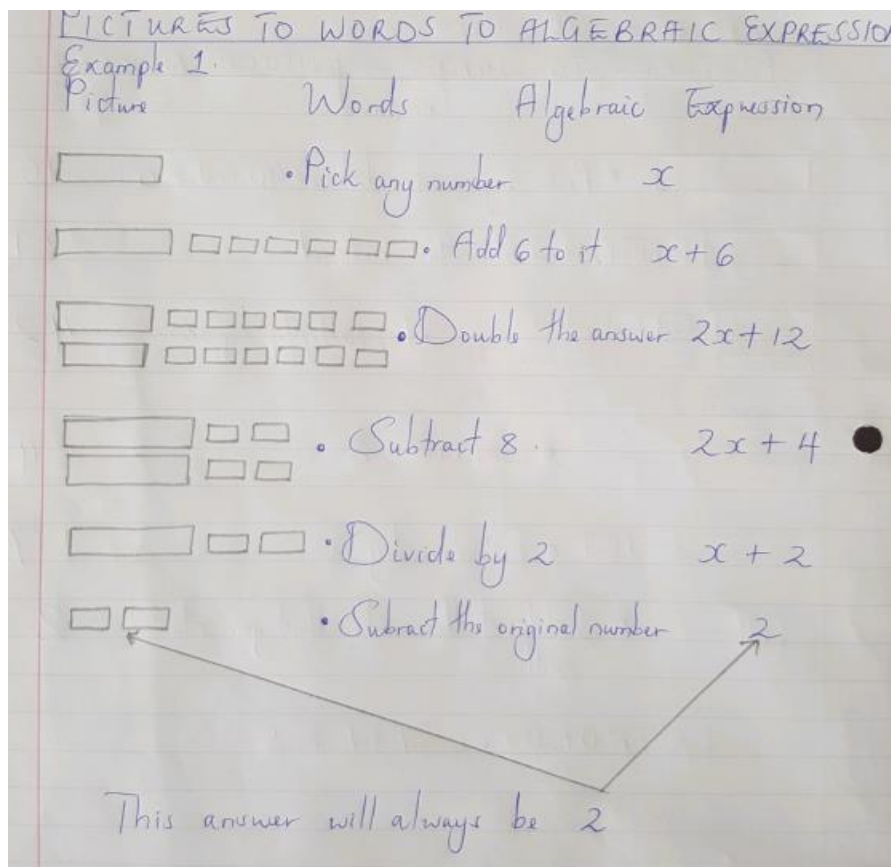 PICTURES TO WORDS TO ALGEBRAIC EXPRESSION
Example 1.
Picture Words Algebraic Expression
• Pick any number x
• Add 6 to it x + 6
• Double the answer 2x + 12
• Subtract 8. 2x + 4
• Divide by 2 x + 2
• Subract the original number 2
This answer will always be 2